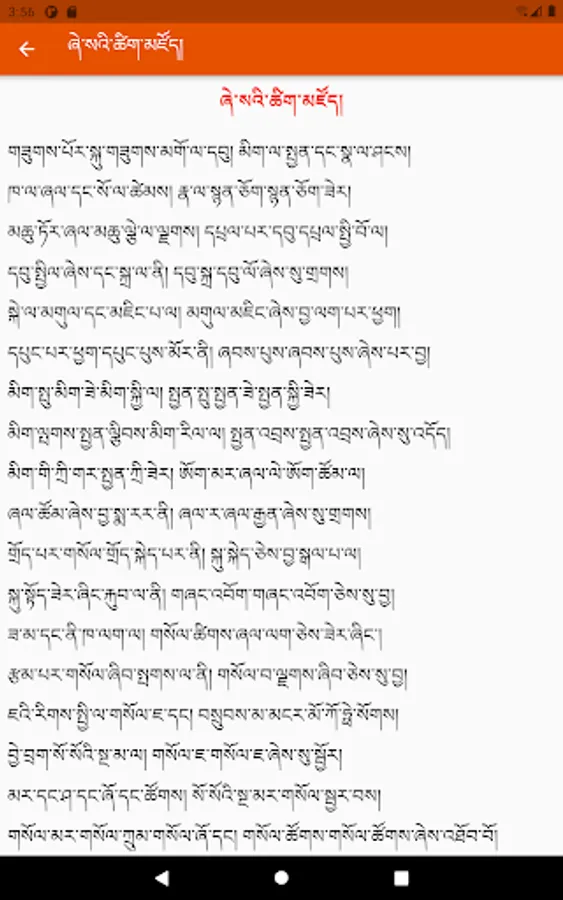 3:56
ཞེ་སའི་ཚིག་མཛོད།
ཞེ་སའི་ཚིག་མཛོད།
གཟུགས་པོར་སྐུ་གཟུགས་མགོ་ལ་དབུ། མིག་ལ་སྤྱན་དང་སྣ་ལ་ཤངས།
ཁ་ལ་ཞལ་དང་སོ་ལ་ཚེམས། རྣ་ལ་སྙན་ཅོག་སྙན་ཅོག་ཟེར།
མཆུ་ཏོར་ཞལ་མཆུ་ལྕེ་ལ་ལྗགས། དཔྲལ་པར་དབུ་དཔྲལ་སྤྱི་བོ་ལ།
དབུ་སྤྱིལ་ཞེས་དང་སྐྲ་ལ་ནི། དབུ་སྐྲ་དབུ་ལོ་ཞེས་སུ་གྲགས།
སྐེ་ལ་མགུལ་དང་མཇིང་པ་ལ། མགུལ་མཇིང་ཞེས་བྱ་ལག་པར་ཕྱག།
དཔུང་པར་ཕྱག་དཔུང་པུས་མོར་ནི། ཞབས་པུས་ཞབས་པུས་ཞེས་པར་བྱ།
མིག་སྤུ་མིག་ཟེ་མིག་སྐྱི་ལ། སྤྱན་སྤུ་སྤྱན་ཟེ་སྤྱན་སྐྱི་ཟེར།
མིག་ལྤགས་སྤྱན་ལྕིབས་མིག་རིལ་ལ། སྤྱན་འབྲས་སྤྱན་འབྲས་ཞེས་སུ་འདོད།
མིག་གི་ཀྲི་གར་སྤྱན་ཀྲི་ཟེར། ཨོག་མར་ཞལ་ལེ་ཨོག་ཚོམ་ལ།
ཞལ་ཚོམ་ཞེས་བྱ་སྨ་རར་ནི། ཞལ་ར་ཞལ་རྒྱན་ཞེས་སུ་གྲགས།
གྲོད་པར་གསོལ་གྲོད་སྐེད་པར་ནི། སྐུ་སྐེད་ཅེས་བྱ་སྒལ་པ་ལ།
སྐུ་སྟོད་ཟེར་ཞིང་རྐུབ་ལ་ནི། གཞང་འབོག་གཞང་འབོག་ཅེས་སུ་བྱ།
ཟ་མ་དང་ནི་ཁ་ལག་ལ། གསོལ་ཚིགས་ཞལ་ལག་ཅེས་ཟེར་ཞིང་།
རྩམ་པར་གསོལ་ཞིབ་སྤགས་ལ་ནི། གསོལ་བ་ལྗགས་ཞིབ་ཅེས་སུ་བྱ།
ཇའི་རིགས་སྤྱི་ལ་གསོལ་ཇ་དང་། བསྲུབས་མ་མངར་མོ་ཀོ་ཧྥེ་སོགས།
བྱེ་བྲག་སོ་སོའི་སྔ་མ་ལ། གསོལ་ཇ་གསོལ་ཇ་ཞེས་སུ་སྦྱོར།
མར་དང་ཤ་དང་ཞོ་དང་ཚོགས། སོ་སོའི་སྔ་མར་གསོལ་སྦྱར་བས།
གསོལ་མར་གསོལ་ཀྲུམ་གསོལ་ཞོ་དང་། གསོལ་ཚོགས་གསོལ་ཚོགས་ཞེས་འཐོབ་བོ།